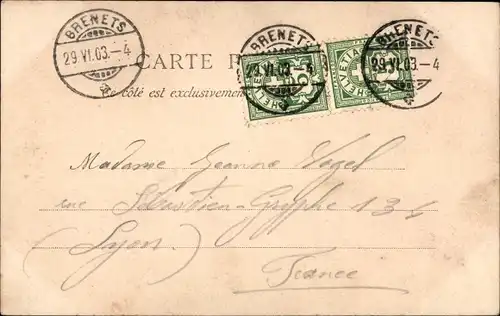 BRENETS
29.VI.03.-4
BRENETS
29.VI.03.-4
BRENETS
29.VI.03.-4
CARTE
HELVETIA
Ce côté est exclusivement
Madame Jeanne Vogel
rue Sébastien-Gryphe 134
(Lyon)
France